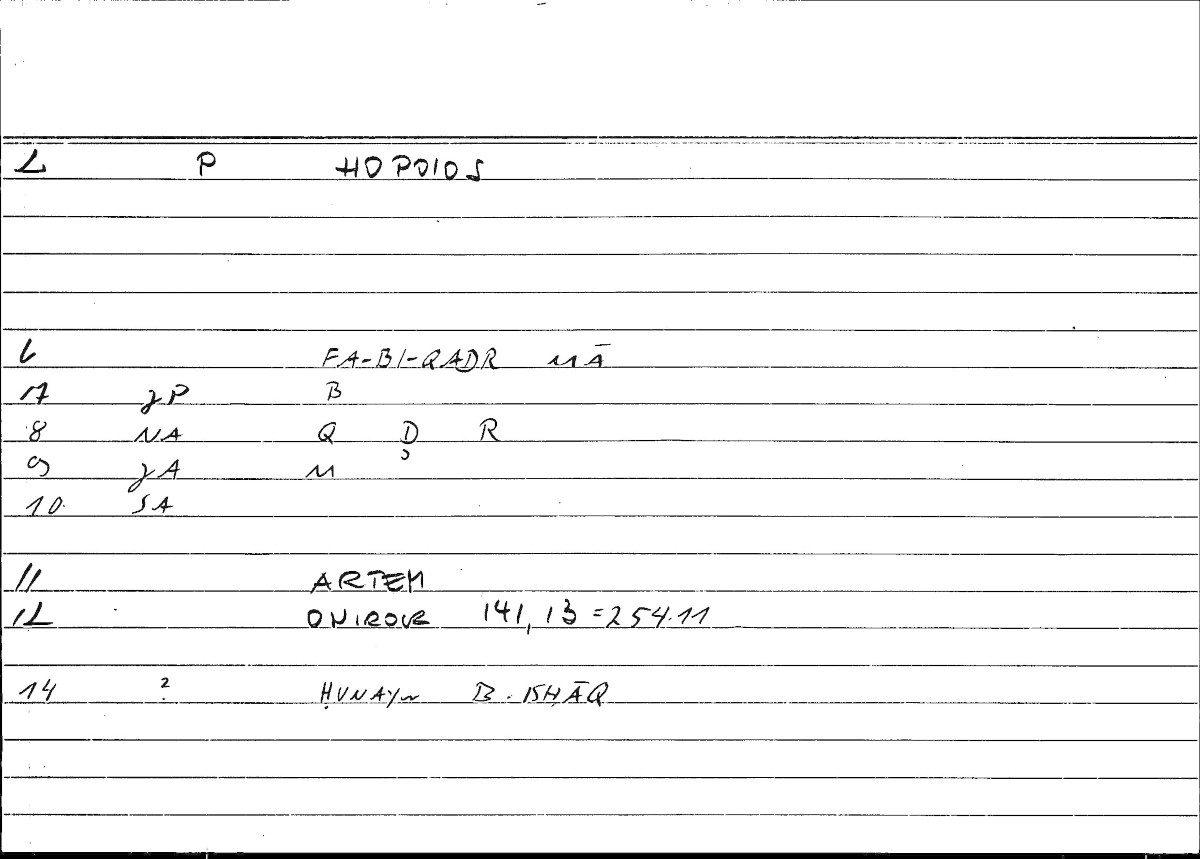 2 P HOPOIOS
6 FA-BI-QADR MĀ
7 JP B
8 NA Q Ḍ R
9 JA M
10. SA
11 ARTEM
12 ONIROCR 141,13 =254.11
14 2 ḤUNAYN B. ISḤĀQ